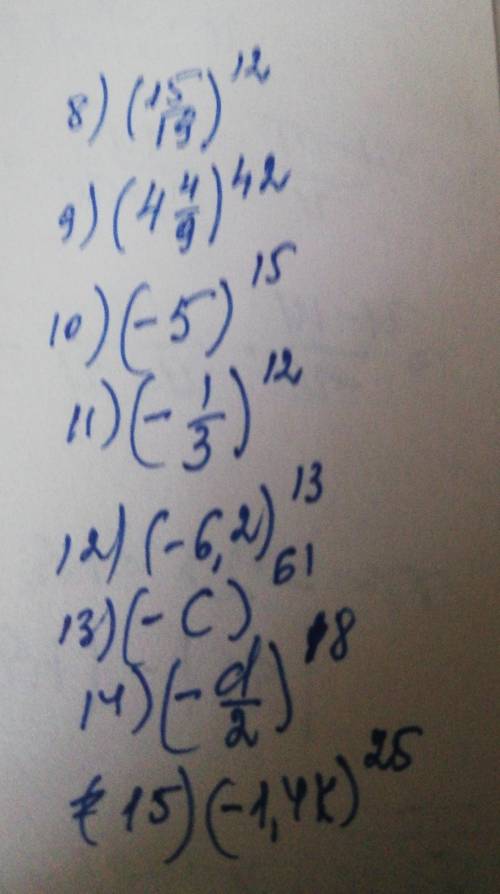 8) (15/19)^12
9) (4 4/9)^42
10) (-5)^15
11) (-1/3)^12
12) (-6,2)^13
13) (-c)^61
14) (-d/2)^18
15) (-1,4k)^25